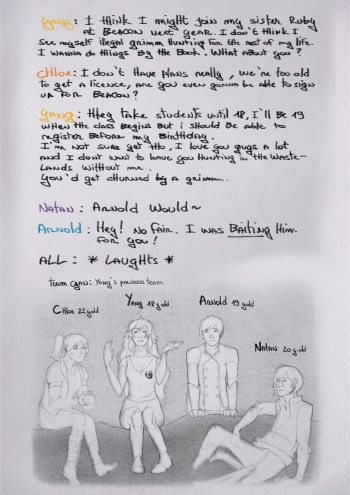 Yang: I think I might join my sister Ruby
at Beacon next year. I don't think I
see myself illegal grimm hunting for the rest of my life.
I wanna do things by the book. What about you?
Chloe: I don't have plans really, we're too old
to get a licence, are you even gonna be able to sign
up for Beacon?
Yang: They take students until 18, I'll be 19
when the class begins but i should be able to
register before my birthday.
I'm not sure yet tho, I love you guys a lot
and I dont want to leave you hunting in the waste-
lands without me.
You'd get churned by a grimm.
Natan: Arnold would~
Arnold: Hey! No fair. I was baiting him
for you!
All: * Laughts *
Team CYAN: Yang's previous team
Chloe 22 y.old
Yang 18 y.old
Arnold 19 y.old
Natan 20 y.old